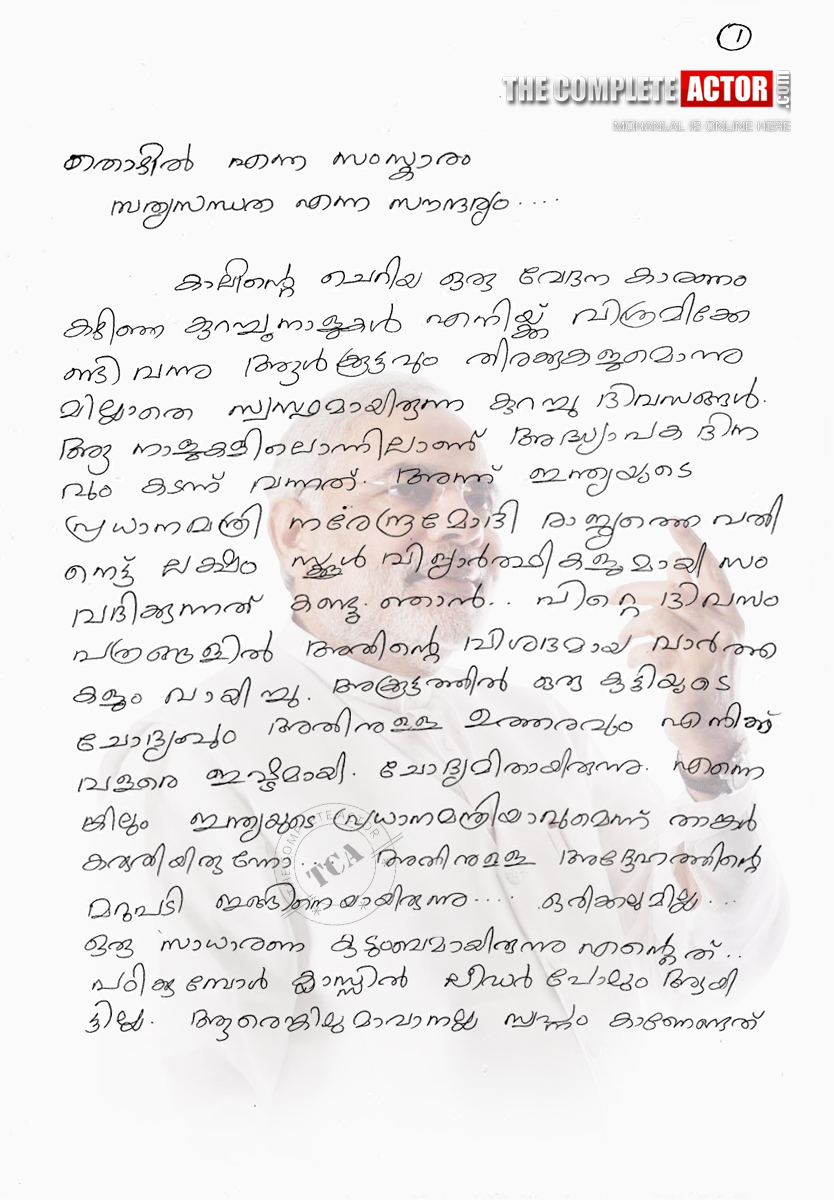 1
THE COMPLETE ACTOR .com
MOHANLAL IS ONLINE HERE
തൊഴിൽ എന്ന സംസ്കാരം
സത്യസന്ധത എന്ന സൗന്ദര്യം....
കാലിന്റെ ചെറിയ ഒരു വേദന കാരണം
കഴിഞ്ഞ കുറച്ചുനാളുകൾ എനിയ്ക്ക് വിശ്രമിക്കേ
ണ്ടി വന്നു ആൾക്കൂട്ടവും തിരക്കുകളുമൊന്നു
മില്ലാതെ സ്വസ്ഥമായിരുന്ന കുറച്ചു ദിവസങ്ങൾ.
ആ നാളുകളിലൊന്നിലാണ് അദ്ധ്യാപക ദിന
വും കടന്ന് വന്നത്. അന്ന് ഇന്ത്യയുടെ
പ്രധാനമന്ത്രി നരേന്ദ്രമോദി രാജ്യത്തെ പതി
നെട്ട് ലക്ഷം സ്ക്കൂൾ വിദ്യാർത്ഥികളുമായി സം
വദിക്കുന്നത് കണ്ടു ഞാൻ.. പിറ്റെ ദിവസം
പത്രങ്ങളിൽ അതിന്റെ വിശദമായ വാർത്ത
കളും വായിച്ചു. അക്കൂട്ടത്തിൽ ഒരു കുട്ടിയുടെ
ചോദ്യവും അതിനുള്ള ഉത്തരവും എനിക്ക്
വളരെ ഇഷ്ടമായി. ചോദ്യമിതായിരുന്നു. എന്നെ
ങ്കിലും ഇന്ത്യയുടെ പ്രധാനമന്ത്രിയാവുമെന്ന് താങ്കൾ
കരുതിയിരുന്നോ... അതിനുള്ള അദ്ദേഹത്തിന്റെ
മറുപടി ഇങ്ങിനെയായിരുന്നു.... ഒരിക്കലുമില്ല...
ഒരു സാധാരണ കുടുംബമായിരുന്നു എന്റെത്..
പഠിക്കുമ്പോൾ ക്ലാസ്സിൽ ലീഡർ പോലും ആയി
ട്ടില്ല. ആരെങ്കിലുമാവാനല്ല സ്വപ്നം കാണേണ്ടത്
TCA